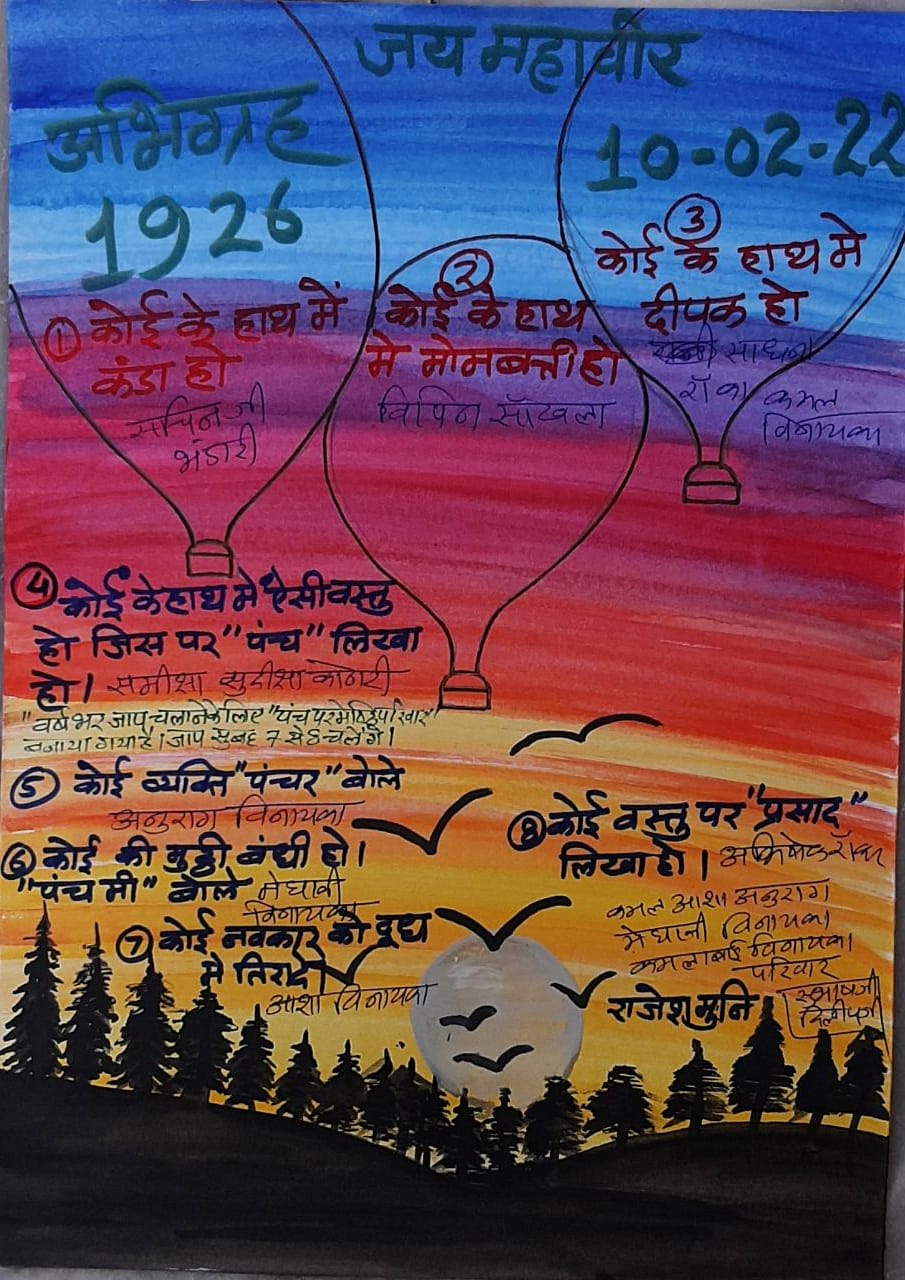 जय महावीर
अभिग्रह
1926
10-02-22
① कोई के हाथ में
कंडा हो
सचिन जी
भंडारी
②
कोई के हाथ
मे मोमबत्ती हो
विपिन सॉखला
③
कोई के हाथ मे
दीपक हो
साधना
रॉका कमल
विनायका
④ कोई के हाथ मे ऐसी वस्तु
हो जिस पर "पंच" लिखा
हो। समीक्षा सुदीक्षा
"वर्ष भर जाप चलाने के लिए "पंच परमेष्ठि
बनाया गया है। जाप सुबह 7 से 8 चलेंगे।
⑤ कोई व्यक्ति "पंचर" बोले
अनुराग विनायका
⑥ कोई की मुठ्ठी बंधी हो।
"पंच मी" बोले मेघावी
विनायका
⑦ कोई नवकार को दूध
मे तिरादी
आशा विनायका
⑧ कोई वस्तु पर "प्रसाद"
लिखा हो। अभिषेक रॉका
कमल आशा अनुराग
मेघावी विनायका
कमलाबाई विनायका
परिवार
राजेश मुनि
सुभाषजी
दिलीपजी